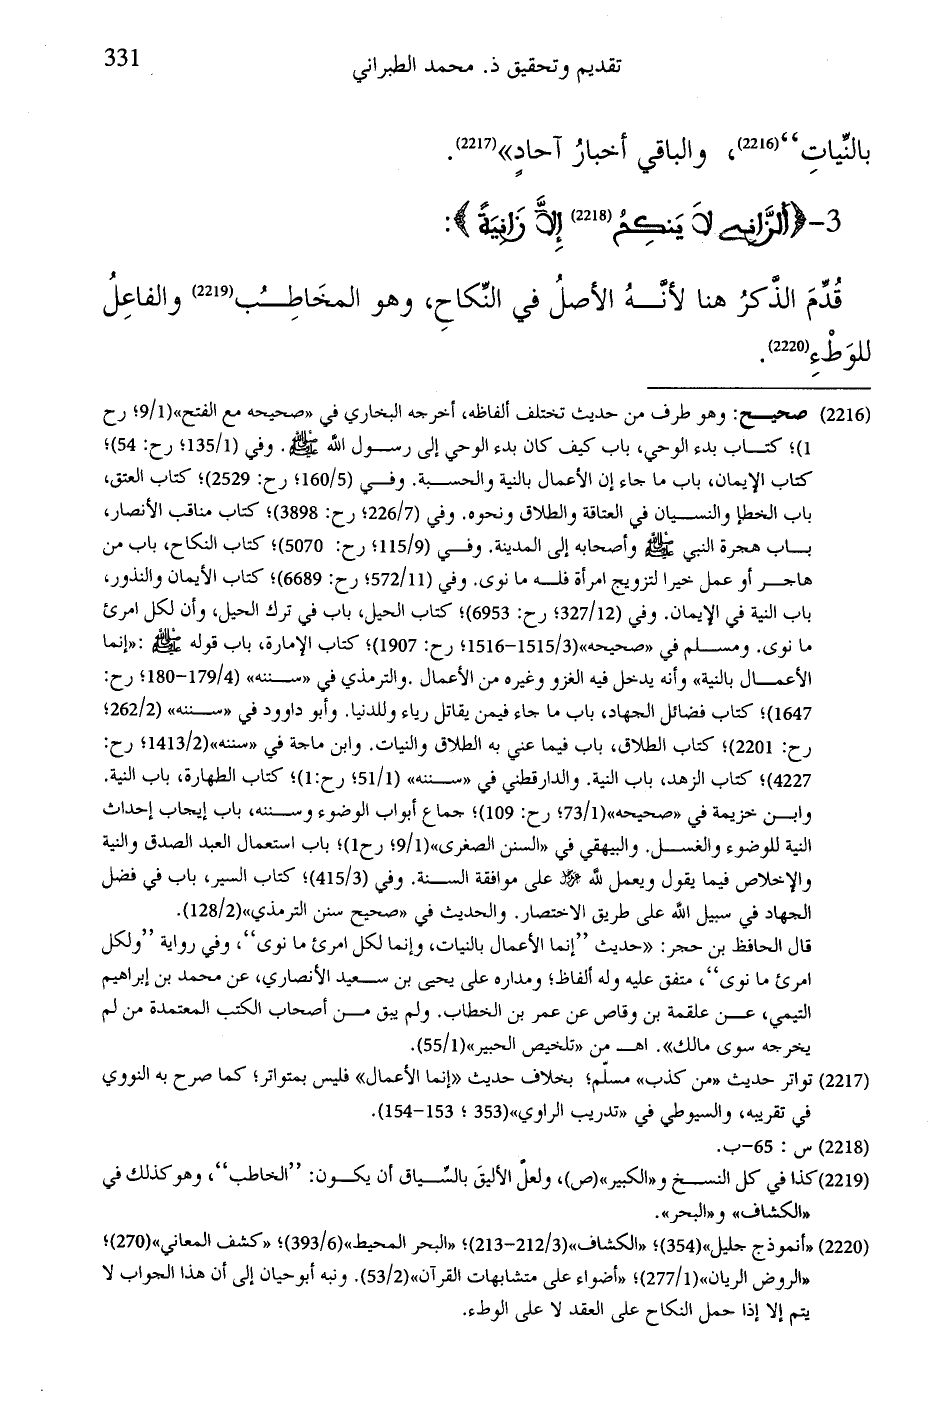 331
تقديم وتحقيق ذ. محمد الطبراني
بالنِّياتِ‘‘(2216)، والباقي أخبارُ آحادٍ»(2217).
3-﴿اَلزَّانِے لَا يَنكِحُ(2218) إِلَّا زَانِيَةً﴾:
قُدِّمَ الذَّكرُ هنا لأنَّـهُ الأصلُ في النِّكاحِ، وهو المخَاطِـبُ(2219) والفاعِلُ
للوَطْءِ(2220).
(2216) صحيح: وهو طرف من حديث تختلف ألفاظه، أخرجه البخاري في «صحيحه مع الفتح»(9/1؛ رح
1)؛ كتـاب بدء الوحي، باب كيف كان بدء الوحي إلى رسـول الله ﷺ. وفي (135/1؛ رح: 54)؛
كتاب الإيمان، باب ما جاء إن الأعمال بالنية والحسـبة. وفـي (160/5؛ رح: 2529)؛ كتاب العتق،
باب الخطإ والنسـيان في العتاقة والطلاق ونحوه. وفي (226/7؛ رح: 3898)؛ كتاب مناقب الأنصار،
بـاب هجرة النبي ﷺ وأصحابه إلى المدينة. وفـي (115/9؛ رح: 5070)؛ كتاب النكاح، باب من
هاجـر أو عمل خيرا لتزويج امرأة فلـه ما نوى. وفي (572/11؛ رح: 6689)؛ كتاب الأيمان والنذور،
باب النية في الإيمان. وفي (327/12؛ رح: 6953)؛ كتاب الحيل، باب في ترك الحيل، وأن لكل امرئ
ما نوى. ومسـلم في «صحيحه»(1515/3-1516؛ رح: 1907)؛ كتاب الإمارة، باب قوله ﷺ :«إنما
الأعمـال بالنية» وأنه يدخل فيه الغزو وغيره من الأعمال .والترمذي في «سـننه» (179/4-180؛ رح:
1647)؛ كتاب فضائل الجهاد، باب ما جاء فيمن يقاتل رياء وللدنيا. وأبو داوود في «سـننه» (262/2؛
رح: 2201)؛ كتاب الطلاق، باب فيما عني به الطلاق والنيات. وابن ماجة في «سننه»(1413/2؛ رح:
4227)؛ كتاب الزهد، باب النية. والدارقطني في «سـننه» (51/1؛ رح:1)؛ كتاب الطهارة، باب النية.
وابـن خزيمة في «صحيحه»(73/1؛ رح: 109)؛ جماع أبواب الوضوء وسـننه، باب إيجاب إحداث
النية للوضوء والغسـل. والبيهقي في «السنن الصغرى»(9/1؛ رح1)؛ باب استعمال العبد الصدق والنية
والإخلاص فيما يقول ويعمل لله ﷻ على موافقة السـنة. وفي (415/3)؛ كتاب السير، باب في فضل
الجهاد في سبيل الله على طريق الاختصار. والحديث في «صحيح سنن الترمذي»(128/2).
قال الحافظ بن حجر: «حديث ’’إنما الأعمال بالنيات، وإنما لكل امرئ ما نوى‘‘، وفي رواية ’’ولكل
امرئ ما نوى‘‘، متفق عليه وله ألفاظ؛ ومداره على يحيى بن سـعيد الأنصاري، عن محمد بن إبراهيم
التيمي، عـن علقمة بن وقاص عن عمر بن الخطاب. ولم يبق مـن أصحاب الكتب المعتمدة من لم
يخرجه سوى مالك». اهـ من «تلخيص الحبير»(55/1).
(2217) تواتر حديث «من كذب» مسلّم؛ بخلاف حديث «إنما الأعمال» فليس بمتواتر؛ كما صرح به النووي
في تقريبه، والسيوطي في «تدريب الراوي»(353 ؛ 153-154).
(2218) س : 65-ب.
(2219) كذا في كل النسـخ و«الكبير»(ص)، ولعلّ الأليقَ بالسِّـياق أن يكـون: ’’الخاطب‘‘، وهو كذلك في
«الكشاف» و«البحر».
(2220) «أنموذج جليل»(354)؛ «الكشاف»(212/3-213)؛ «البحر المحيط»(393/6)؛ «كشف المعاني»(270)؛
«الروض الريان»(277/1)؛ «أضواء على متشابهات القرآن»(53/2). ونبه أبو حيان إلى أن هذا الجواب لا
يتم إلا إذا حمل النكاح على العقد لا على الوطء.